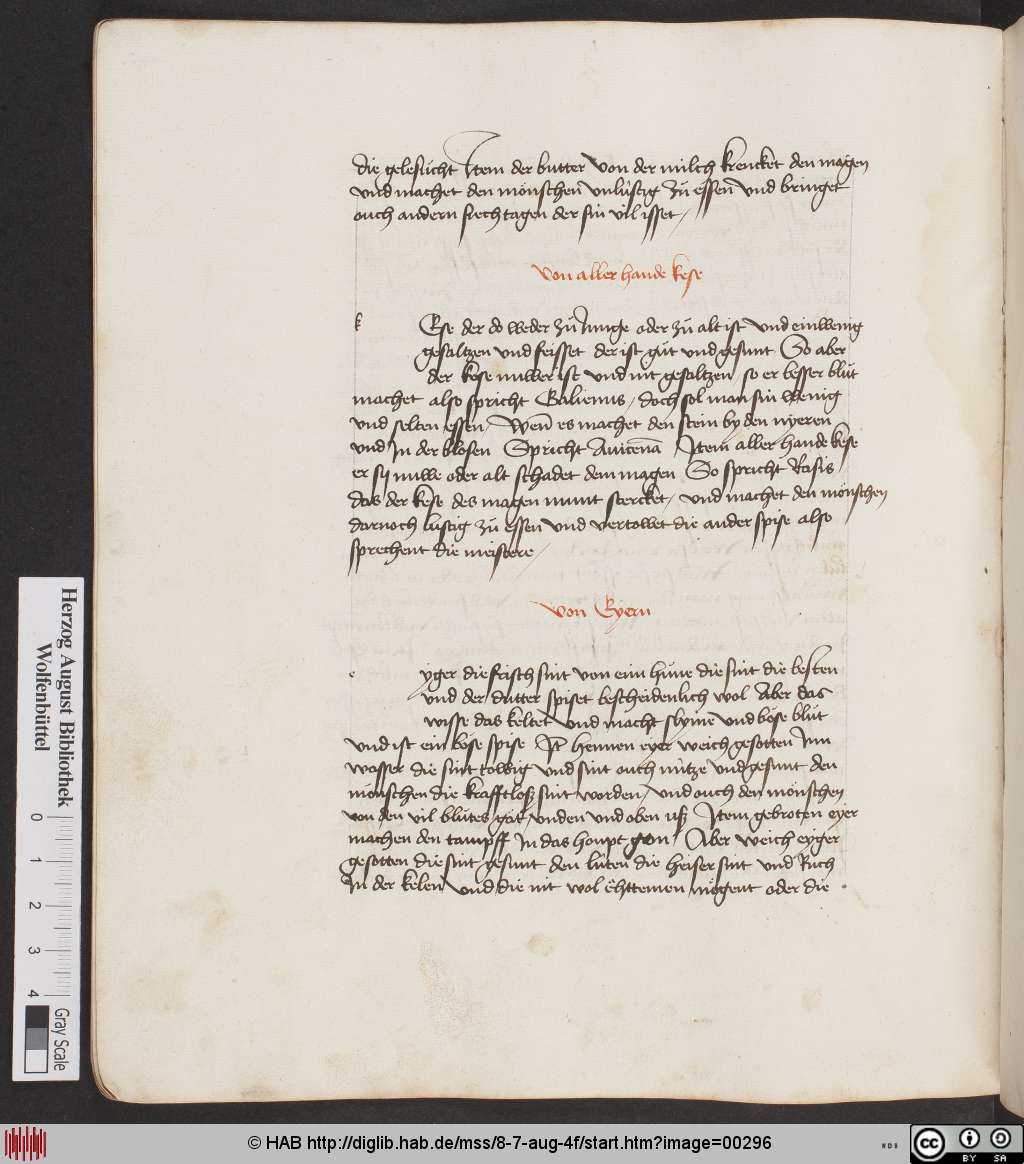 die gelesucht Item der butter von der milch krencket den magen
und machet den mönschen unlustig zů essen und bringet
ouch andern siechtagen der sin vil isset
Von aller hande kese
k
Ese der do weder zů Junge oder zů alt ist und ein wenig
gesaltzen und feisset der ist gůt und gesunt So aber
der kese nuwer ist und nit gesaltzen / so er besser blůt
machet also spricht Galienus / doch sol man sin wenig
und selten essen / Wen̄ es machet den stein by den nyeren
und In der blosen Spricht Avicen̄a Item aller hande kese
er sy nuwe oder alt schadet dem magen So spricht Rasis
das der kese des magen munt stercket / und machet den mönschen
darnoch lustig zů essen und vertowet die ander spise also
sprechent die meistere /
Von Eyern
e
yger die frisch sint von eim hůne die sint die besten
und der dutter spiset bescheidenlich wol Aber das
wisse das keltet und macht slyme und böse blůt
und ist ein böse spise It̄ hennen eyer weich gesotten Inn
wasser die sint towig und sint ouch nütze und gesunt den
mönschen die krafftlosz sint worden / und ouch den mönschen
von den vil blůtes gat / unden und oben usz Item gebroten eyer
machen den tampff In das houpt gon / Aber weich eyger
gesotten die sint gesunt den lüten die heiser sint und Ruch
In der kelen und die nit wol mögent oder die
Herzog August Bibliothek
Wolfenbüttel
0 1 2 3 4
Gray Scale
© HAB http://diglib.hab.de/mss/8-7-aug-4f/start.htm?image=00296
WDB
cc BY SA